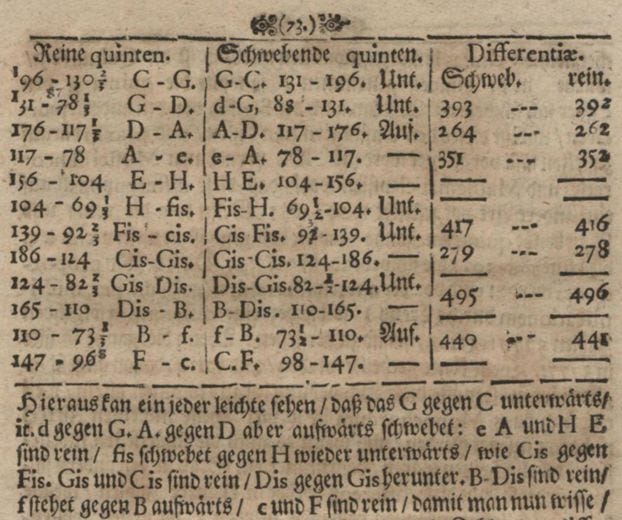 (73.)
Reine quinten. Schwebende quinten. Differentiæ.
196 - 130⅔ C - G. G-C. 131 - 196. Unt. Schweb. rein.
131 - 87⅓ G - D. d-G, 88 - 131. Unt. 393 --- 392
176-117⅓ D - A. A-D. 117 - 176. Auf. 264 --- 262
117 - 78 A - e. e - A. 78 - 117. — 351 --- 352
156 - 104 E - H. H E. 104-156. —
104 - 69⅓ H - fis. Fis-H. 69½-104. Unt.
139 - 92⅔ Fis - cis. Cis Fis. 93-139. Unt. 417 --- 416
186 -124 Cis-Gis. Gis-Cis. 124-186. — 279 --- 278
124 - 82⅔ Gis Dis. Dis-Gis. 82-½-124. Unt.
165 - 110 Dis - B. B-Dis. 110-165. — 495 --- 496
110 - 73⅓ B - f. f - B. 73½ - 110. Auf. 440 --- 441
147 - 98 F - c. C. F. 98 -147. —
Hieraus kan ein jeder leichte sehen / daß das G gegen C unterwärts/
it. d gegen G. A. gegen D aber aufwärts schwebet: e A und H E
sind rein / fis schwebet gegen H wieder unterwärts / wie Cis gegen
Fis. Gis und Cis sind rein / Dis gegen Gis herunter. B-Dis sind rein/
f stehet gegen B aufwärts / c und F sind rein / damit man nun wisse /